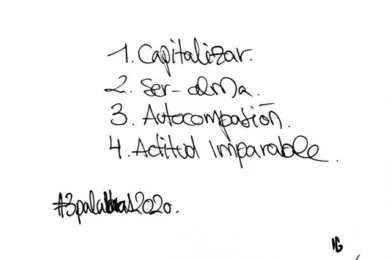 1. Capitalizar.
2. Ser-alma.
3. Autocompasión.
4. Actitud Imparable.
#3palabras2020.
IG